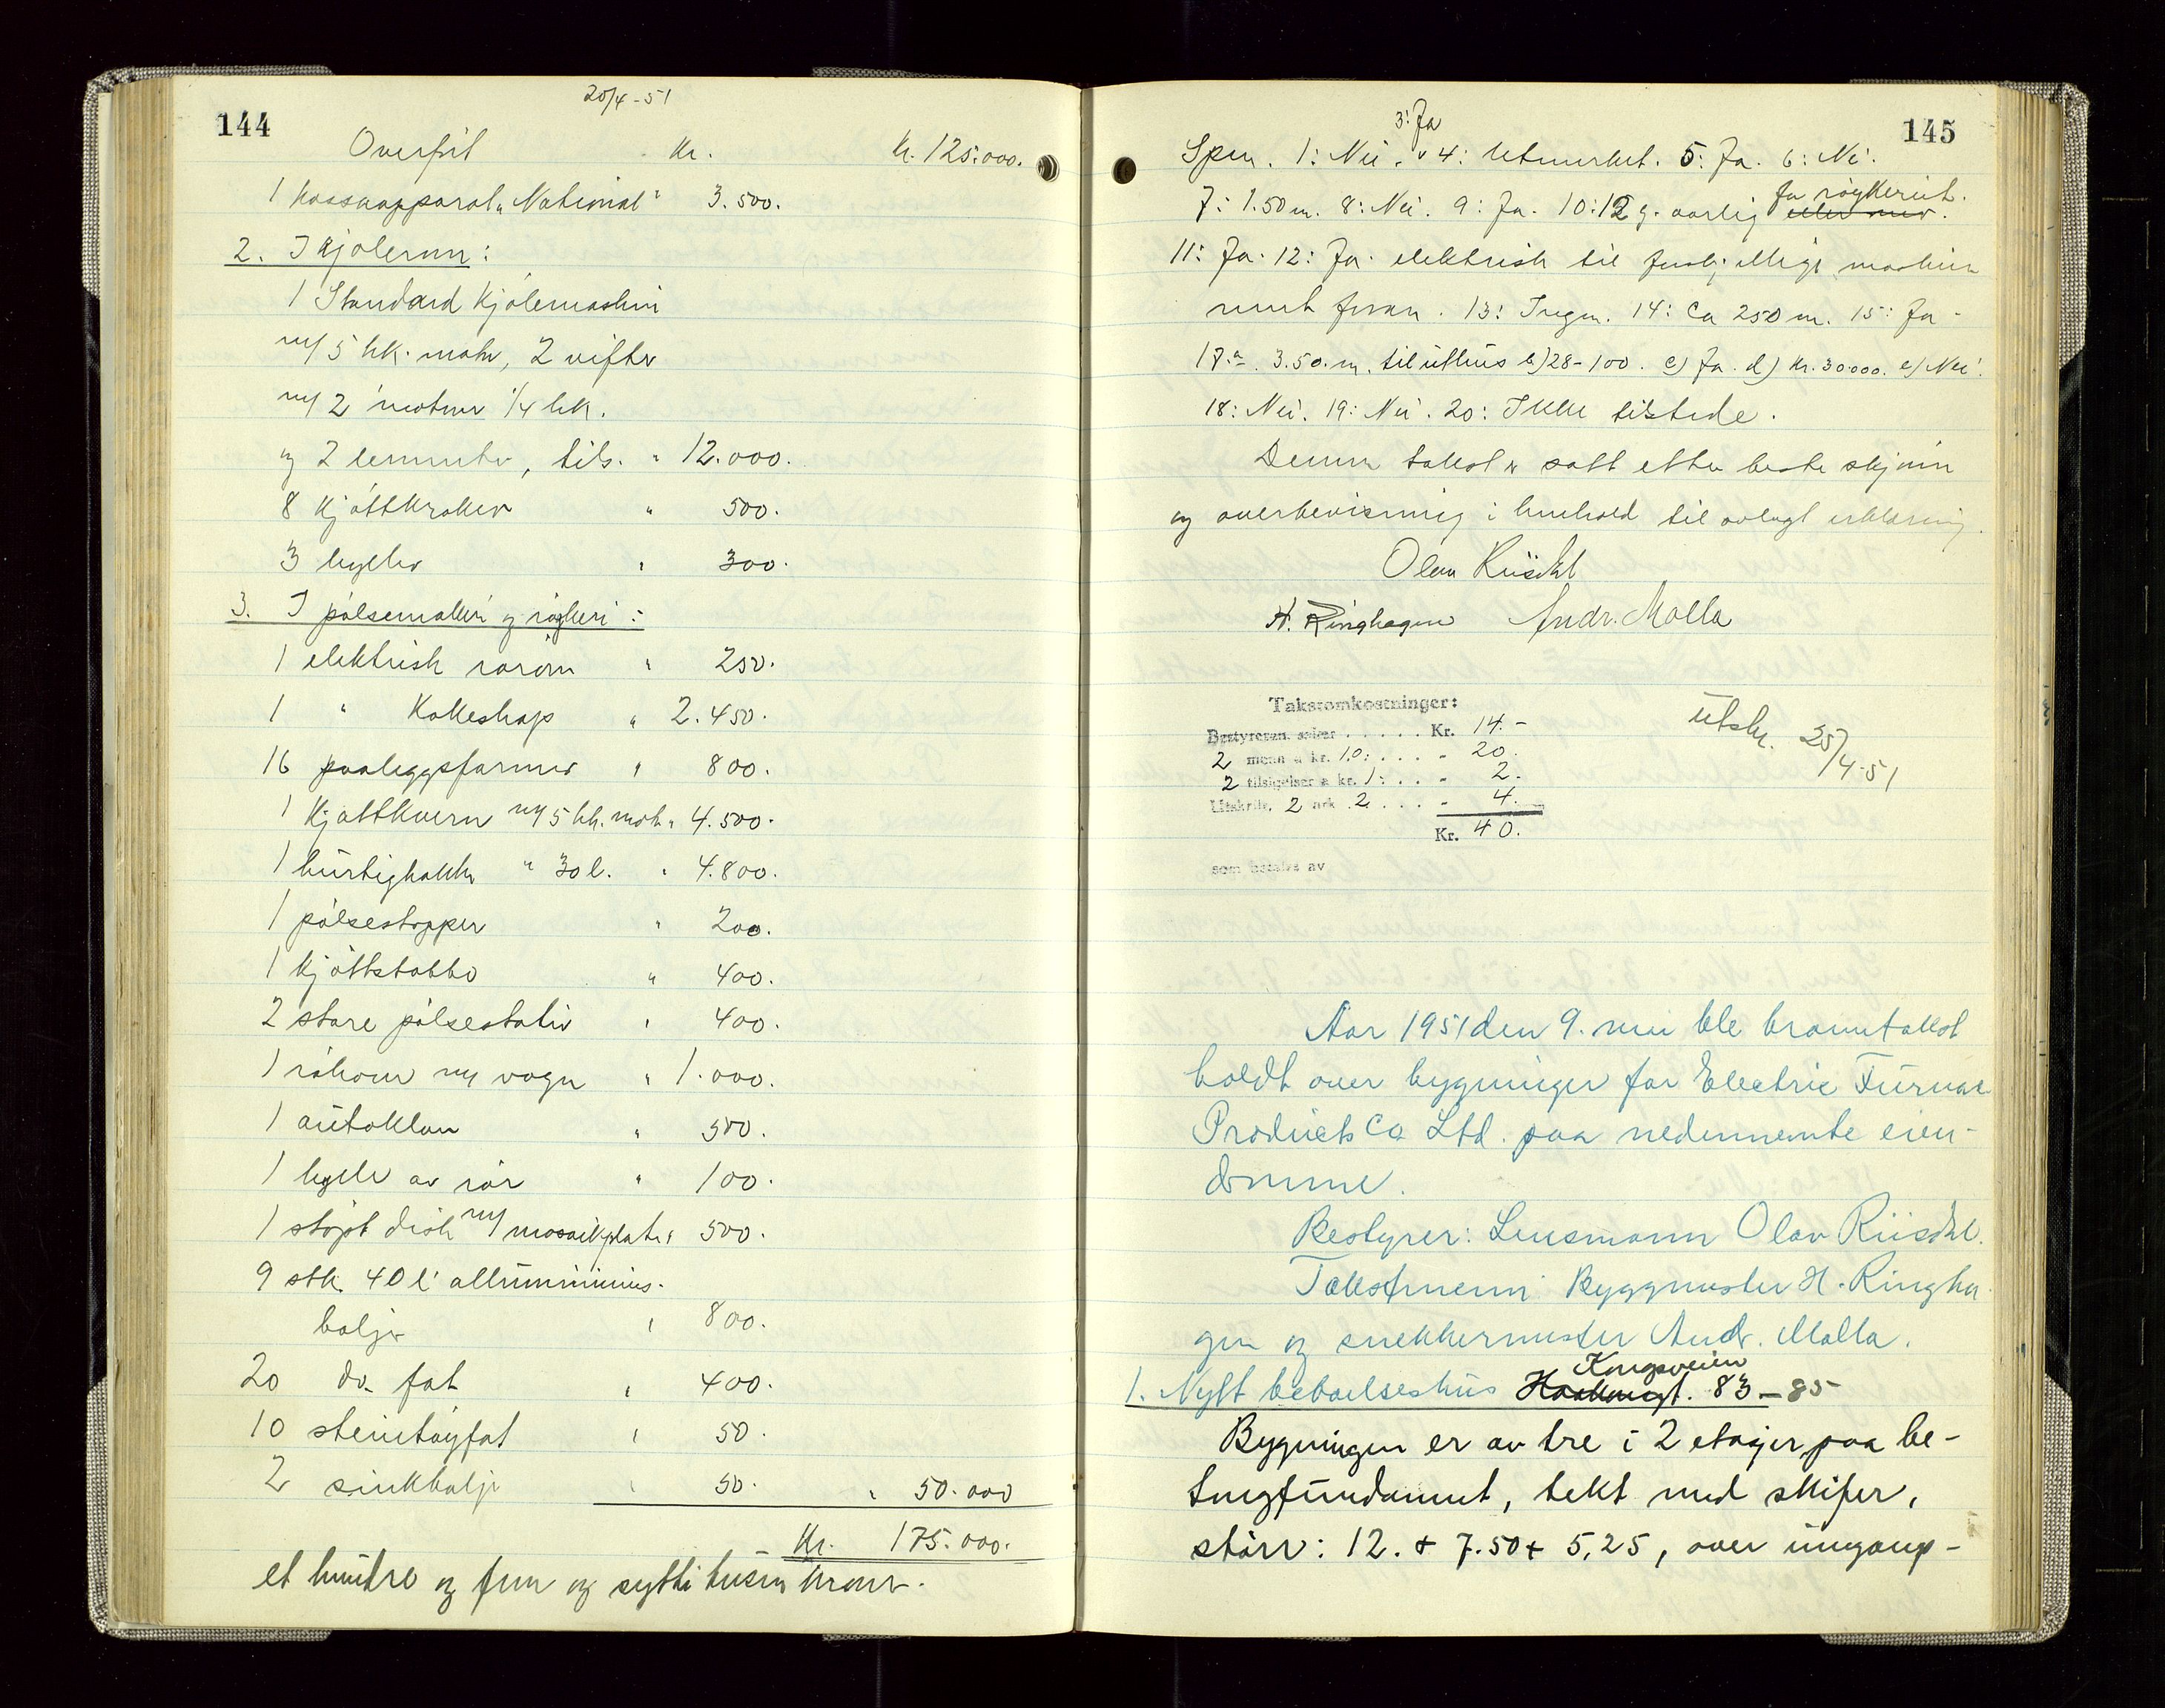 144
20/4-51
Overført Kr. Kr. 125.000.
1 Kassaapparat "National" 3.500.
2. I kjølerum:
1 Standard Kjølemaskin
m/ 5 hk. motor, 2 vifter
m/ 2 motorer 1/4 hk.
og 2 elementer, tils. " 12.000.
8 Kjøttkroker " 500.
3 hyller " 300.
3. I pølsemakeri og røykeri:
1 elektrisk " 250.
1 " Kokeskap " 2.450.
16 paaleggsformer " 800.
1 Kjøttkvern m/ 5 hk. mot. " 4.500.
1 hurtighakker " 30 l. " 4.800.
1 pølsestopper " 200.
1 kjøttstabbe " 400.
2 store pølsestativ " 400.
1 m/ vogn " 1.000.
1 autoklav " 500.
1 hylle av rør " 100.
1 støpt disk m/ mosaikplater " 500.
9 stk. 40 l alluminiums-
baljer " 800.
20 do fat " 400.
10 steintøyfat " 50.
2 sinkbalje " 50. " 50.000
Kr. 175.000.
et hundre og fem og sytti tusen kroner.
145
3: Ja
Spm. 1: Nei. 4: Utmerket. 5: Ja. 6: Nei.
fra røykeriet.
7: 1.50 m. 8: Nei. 9: Ja. 10: 12 g. aarlig eller mer.
11: Ja. 12: Ja. elektrisk til forskjellige maskiner
nevnt foran. 13: Ingen. 14: Ca 250 m. 15: Ja -
17.a. 3.50. m. til uthus b) 28-100. c) Ja. d) Kr. 30.000. e) Nei.
18: Nei. 19: Nei. 20: Ikke tilstede.
Denne takst er satt etter beste skjønn
og overbevisning i henhold til avlagt erklæring.
Olav Riisdal
H. Ringhagen Andr. Molla
Takstomkostninger:
Bestyreren, saker . . . . . Kr. 14.-
2 menn a kr. 10: . . . - 20.
2 tilsigelser a kr. 1: . . . - 2.
Utskrift, 2 ark 2 . . . - 4.
Kr. 40.
som betales av
Utskr. 25/4-51
Aar 1951 den 9. mai ble branntakst
holdt over bygninger for Electric Furnace
Products Co Ltd. paa nedennemte eien-
domme.
Bestyrer: Lensmann Olav Riisdal.
Takstmenn: Byggmester H. Ringha-
gen og snekkermester Andr. Molla.
Kongsveien
1. Nytt beboelseshus Haakonsgt. 83-85
Bygningen er av tre i 2 etasjer paa be-
tongfundament, tekt med skifer,
størr: 12. + 7.50 + 5,25, over inngangs-